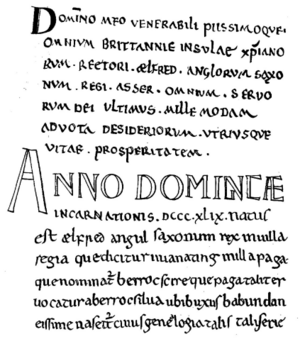 DOMINO MEO VENERABILI PIISSIMOQUE·
OMNIUM BRITTANNIE INSULAE XPIANO
RUM · RECTORI · ÆLFRED · ANGLORUM SAXO
NUM · REGI · ASSER · OMNIUM · SERVO
RUM DEI ULTIMUS · MILLE MODAM
ADVOTA DESIDERIORUM · UTRIUSQUE
VITAE · PROSPERITATEM ·
ANNO DOMINICÆ
INCARNATIONIS · DCCC · XLIX · natus
est ælfred angul saxonum rex in villa
regia que dicitur uuanating in illa paga
que nominatur berrocscire que paga taliter
vocatur a berroc silva ubi buxus habundan
tissime nascitur cuius genelogia talis tali serie